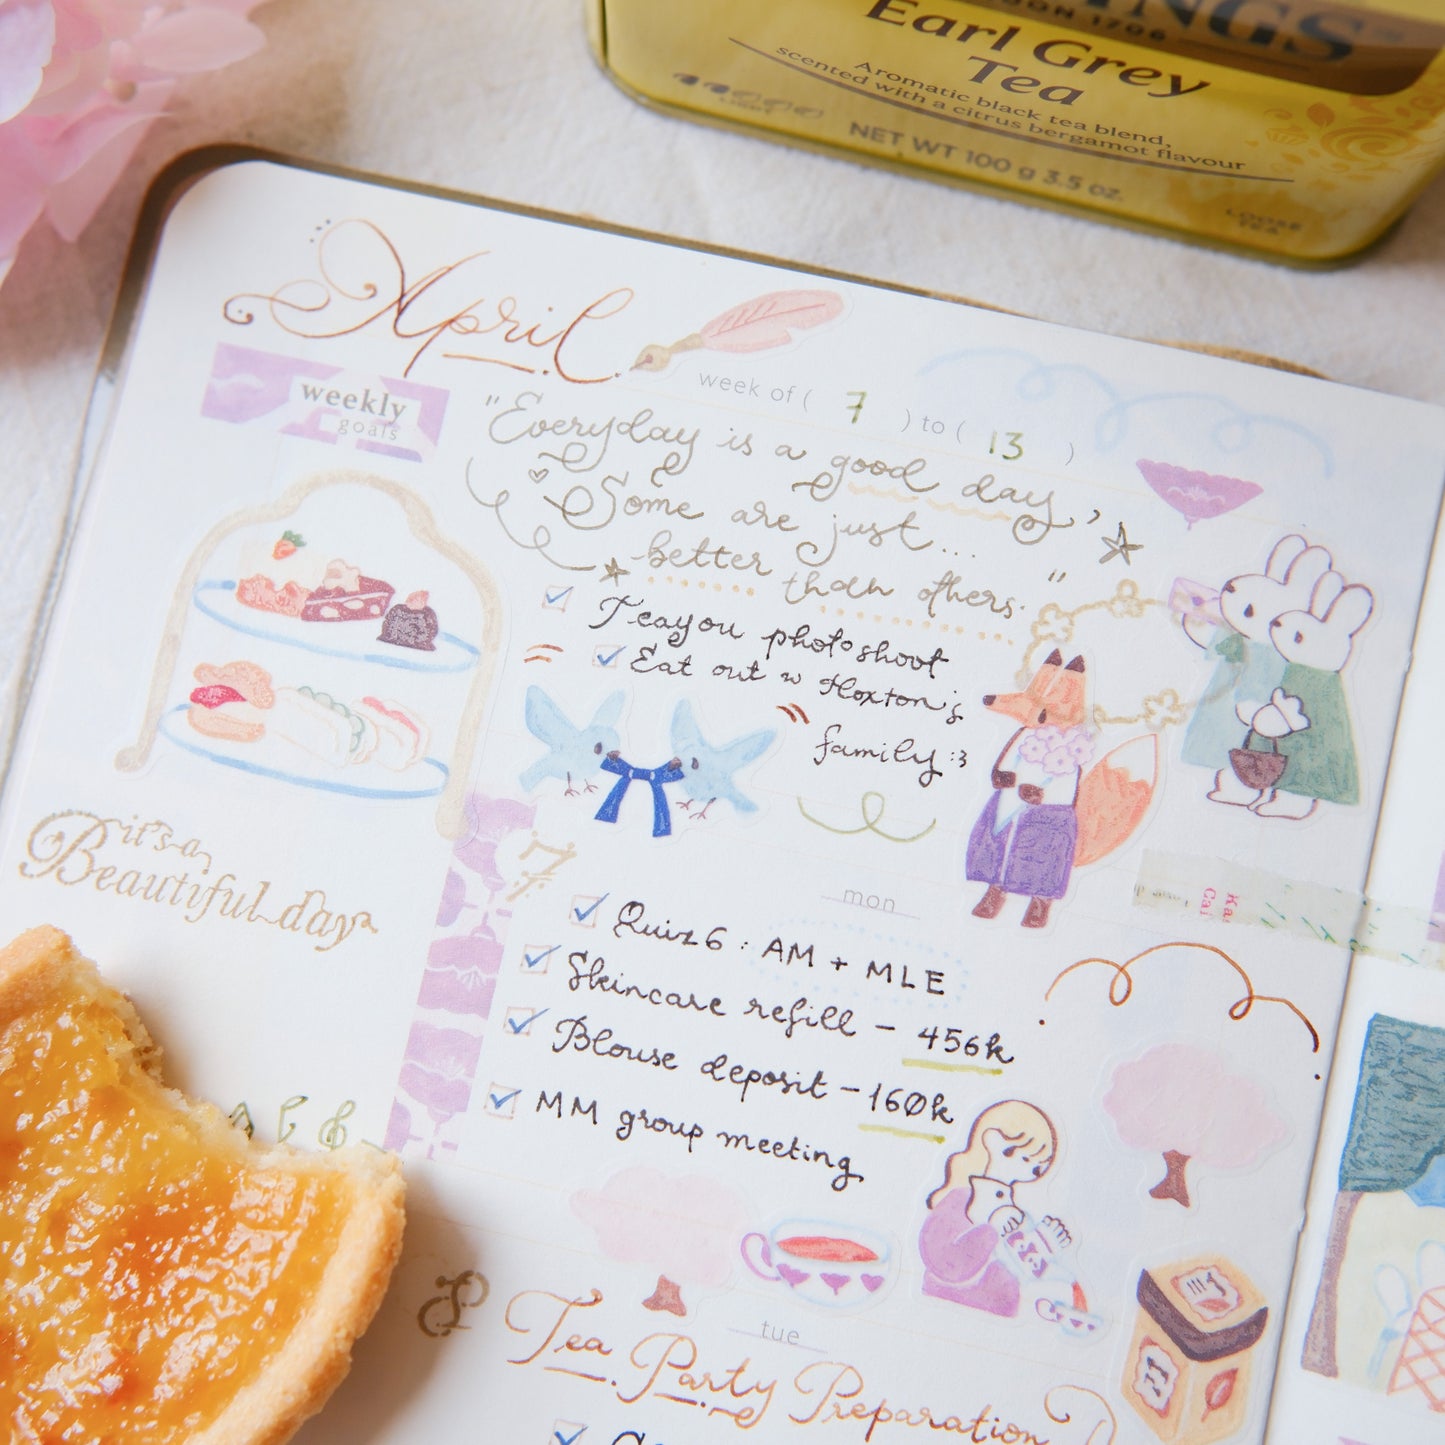 Earl Grey
Tea
Aromatic black tea blend,
scented with a citrus bergamot flavour
LIGHT
NET WT 100 g 3.5 oz.
LOOSE
TEA
April.
weekly
goals
week of ( 7 ) to ( 13 )
"Everyday is a good day,
Some are just...
better than others."
Teayou photoshoot
Eat out w Hoxton's
family :3
it's a
Beautiful day
7
mon
Quiz 6 : AM + MLE
Skincare refill - 456k
Blouse deposit - 160k
MM group meeting
8
tue
Tea Party Preparation